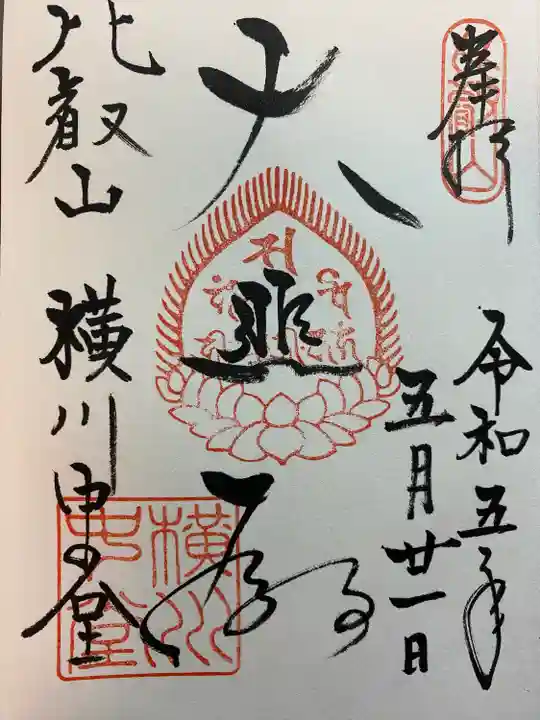 奉拝
令和五年
五月廿一日
大悲殿
比叡山 横川中堂
横川
中堂